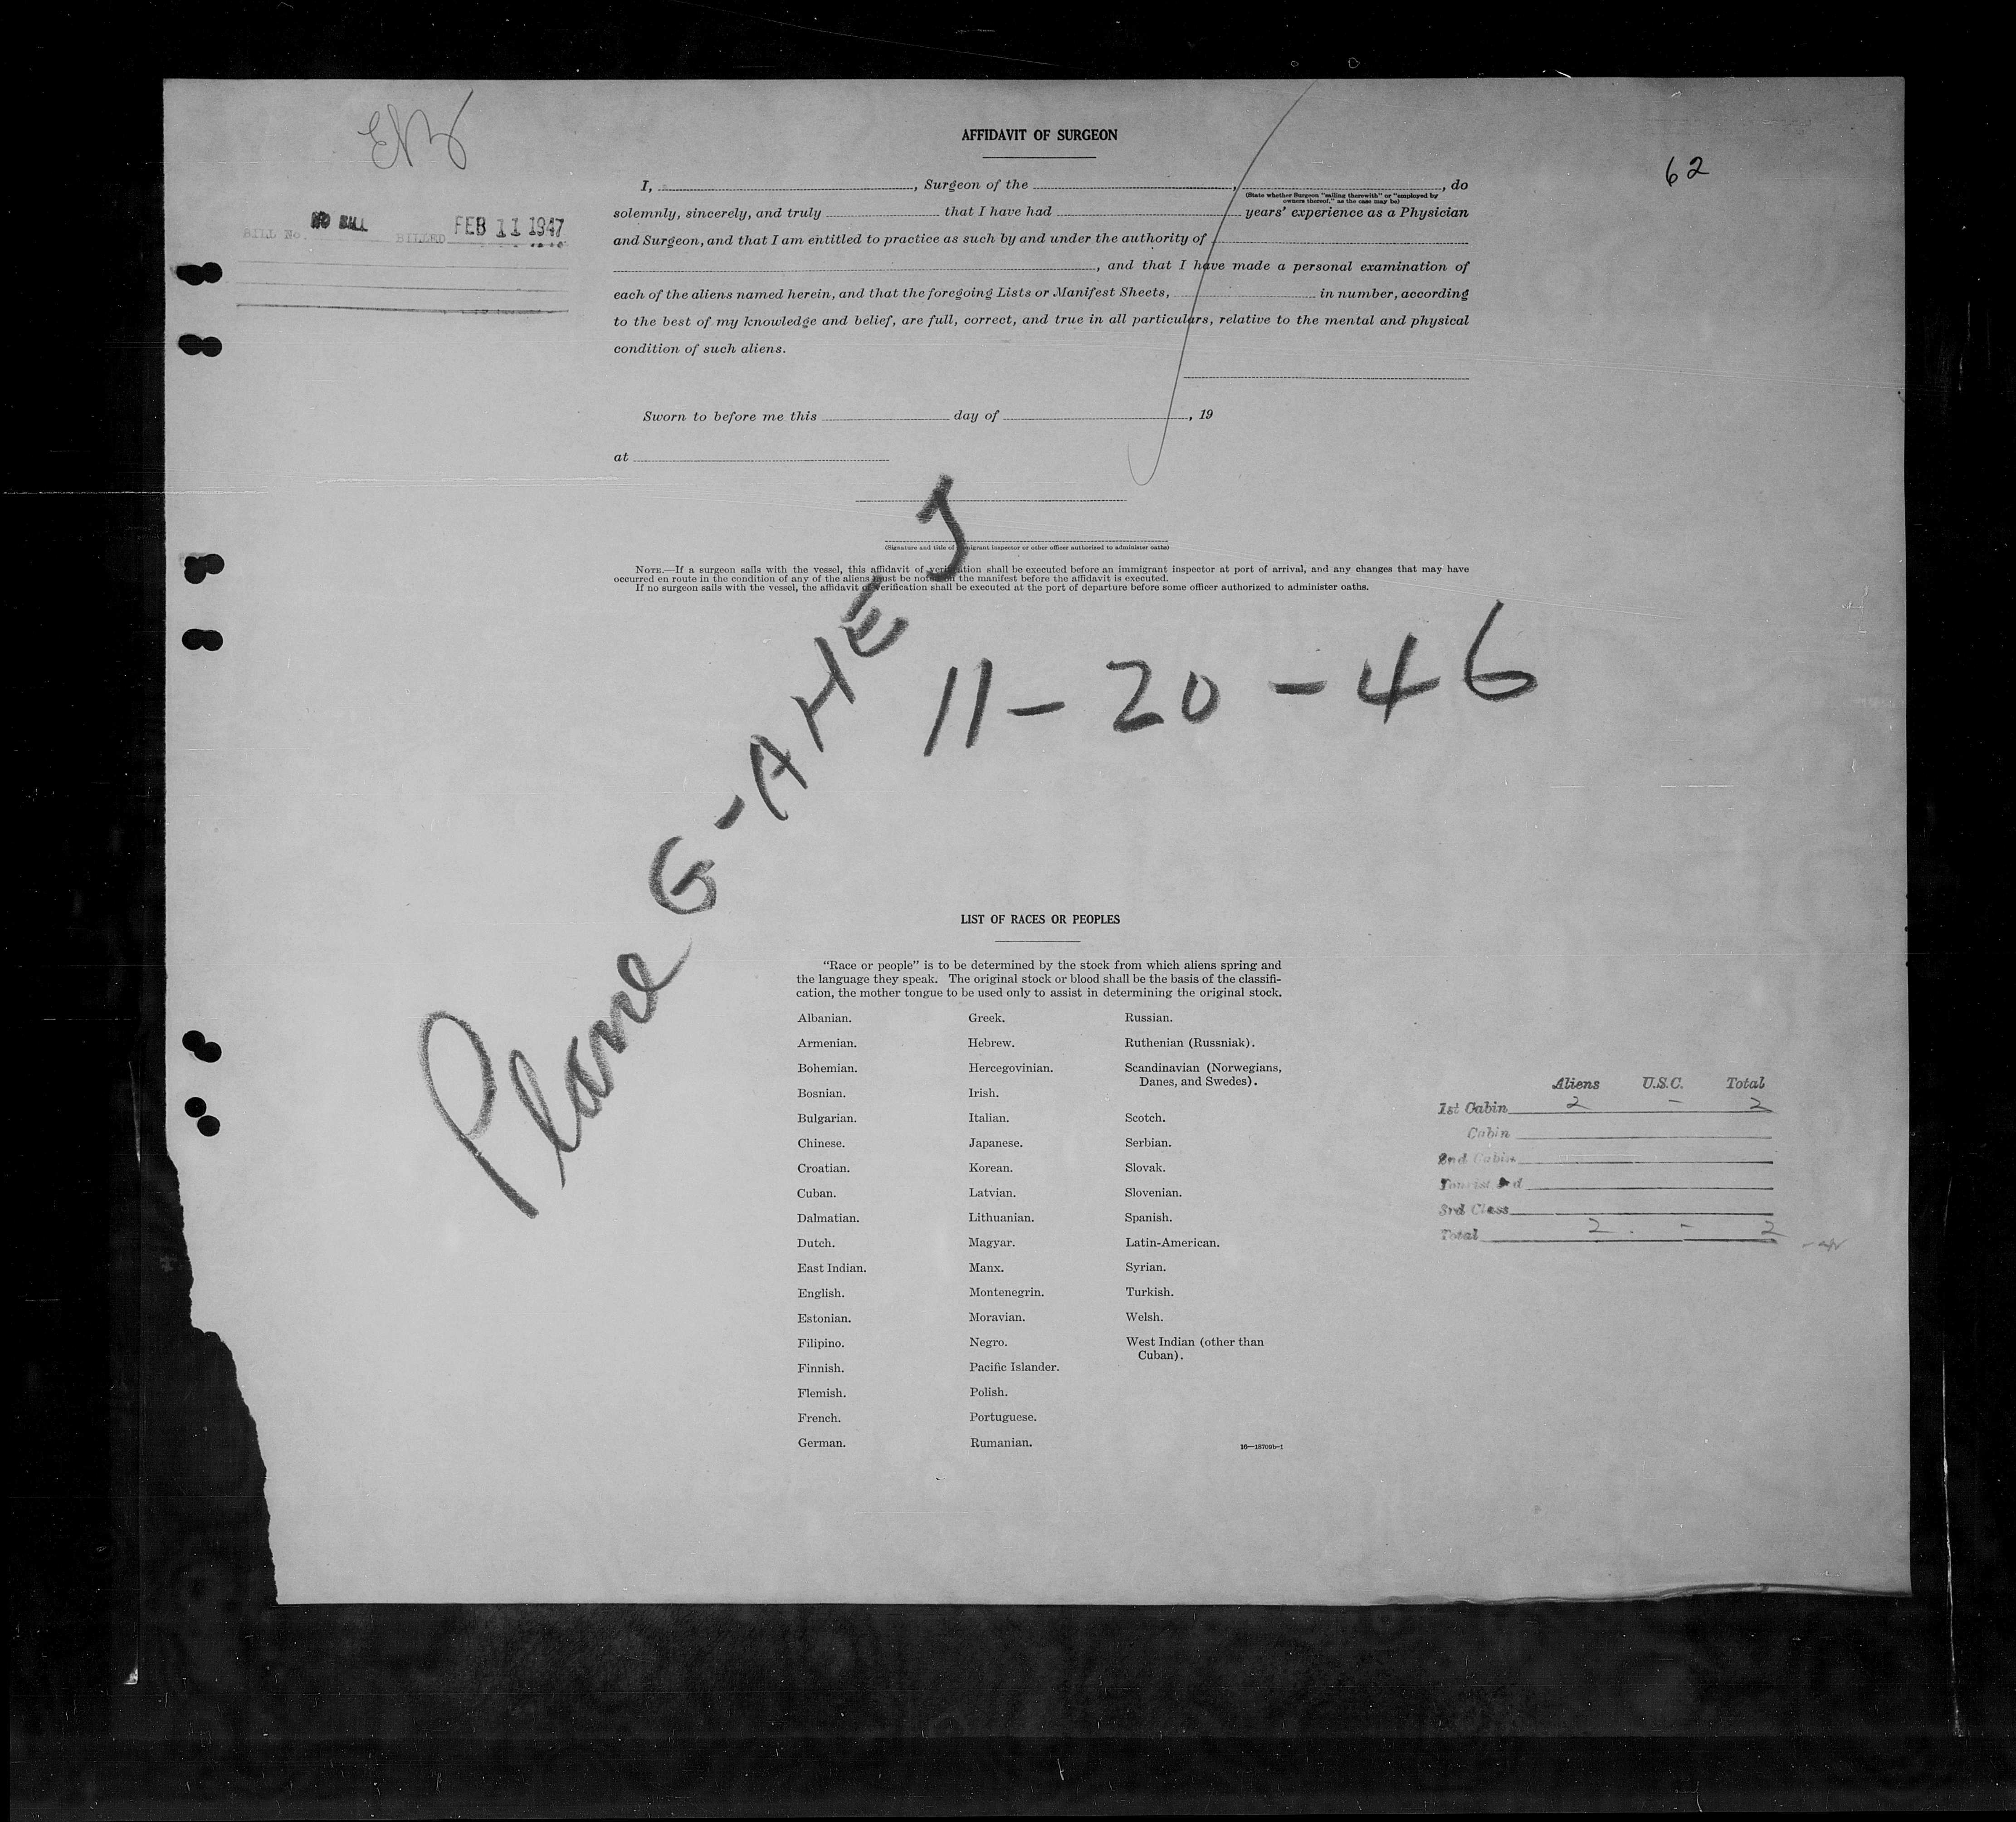 AFFIDAVIT OF SURGEON
62
I, , Surgeon of the , , do
(State whether Surgeon "sailing therewith" or "employed by
owners thereof," as the case may be)
solemnly, sincerely, and truly that I have had years' experience as a Physician
BILL No. NO BILL BILLED FEB 11 1947
and Surgeon, and that I am entitled to practice as such by and under the authority of
, and that I have made a personal examination of
each of the aliens named herein, and that the foregoing Lists or Manifest Sheets, in number, according
to the best of my knowledge and belief, are full, correct, and true in all particulars, relative to the mental and physical
condition of such aliens.
Sworn to before me this day of , 19
at
(Signature and title of immigrant inspector or other officer authorized to administer oaths)
NOTE.—If a surgeon sails with the vessel, this affidavit of verification shall be executed before an immigrant inspector at port of arrival, and any changes that may have
occurred en route in the condition of any of the aliens must be noted on the manifest before the affidavit is executed.
If no surgeon sails with the vessel, the affidavit of verification shall be executed at the port of departure before some officer authorized to administer oaths.
Plane G-AHEJ
11-20-46
LIST OF RACES OR PEOPLES
"Race or people" is to be determined by the stock from which aliens spring and
the language they speak. The original stock or blood shall be the basis of the classifi-
cation, the mother tongue to be used only to assist in determining the original stock.
Albanian.
Armenian.
Bohemian.
Bosnian.
Bulgarian.
Chinese.
Croatian.
Cuban.
Dalmatian.
Dutch.
East Indian.
English.
Estonian.
Filipino.
Finnish.
Flemish.
French.
German.
Greek.
Hebrew.
Hercegovinian.
Irish.
Italian.
Japanese.
Korean.
Latvian.
Lithuanian.
Magyar.
Manx.
Montenegrin.
Moravian.
Negro.
Pacific Islander.
Polish.
Portuguese.
Rumanian.
Russian.
Ruthenian (Russniak).
Scandinavian (Norwegians,
Danes, and Swedes).
Scotch.
Serbian.
Slovak.
Slovenian.
Spanish.
Latin-American.
Syrian.
Turkish.
Welsh.
West Indian (other than
Cuban).
16—18709b-1
Aliens U.S.C. Total
1st Cabin 2 - 2
Cabin
2nd Cabin
Tourist 3rd
3rd Class
Total 2 - 2